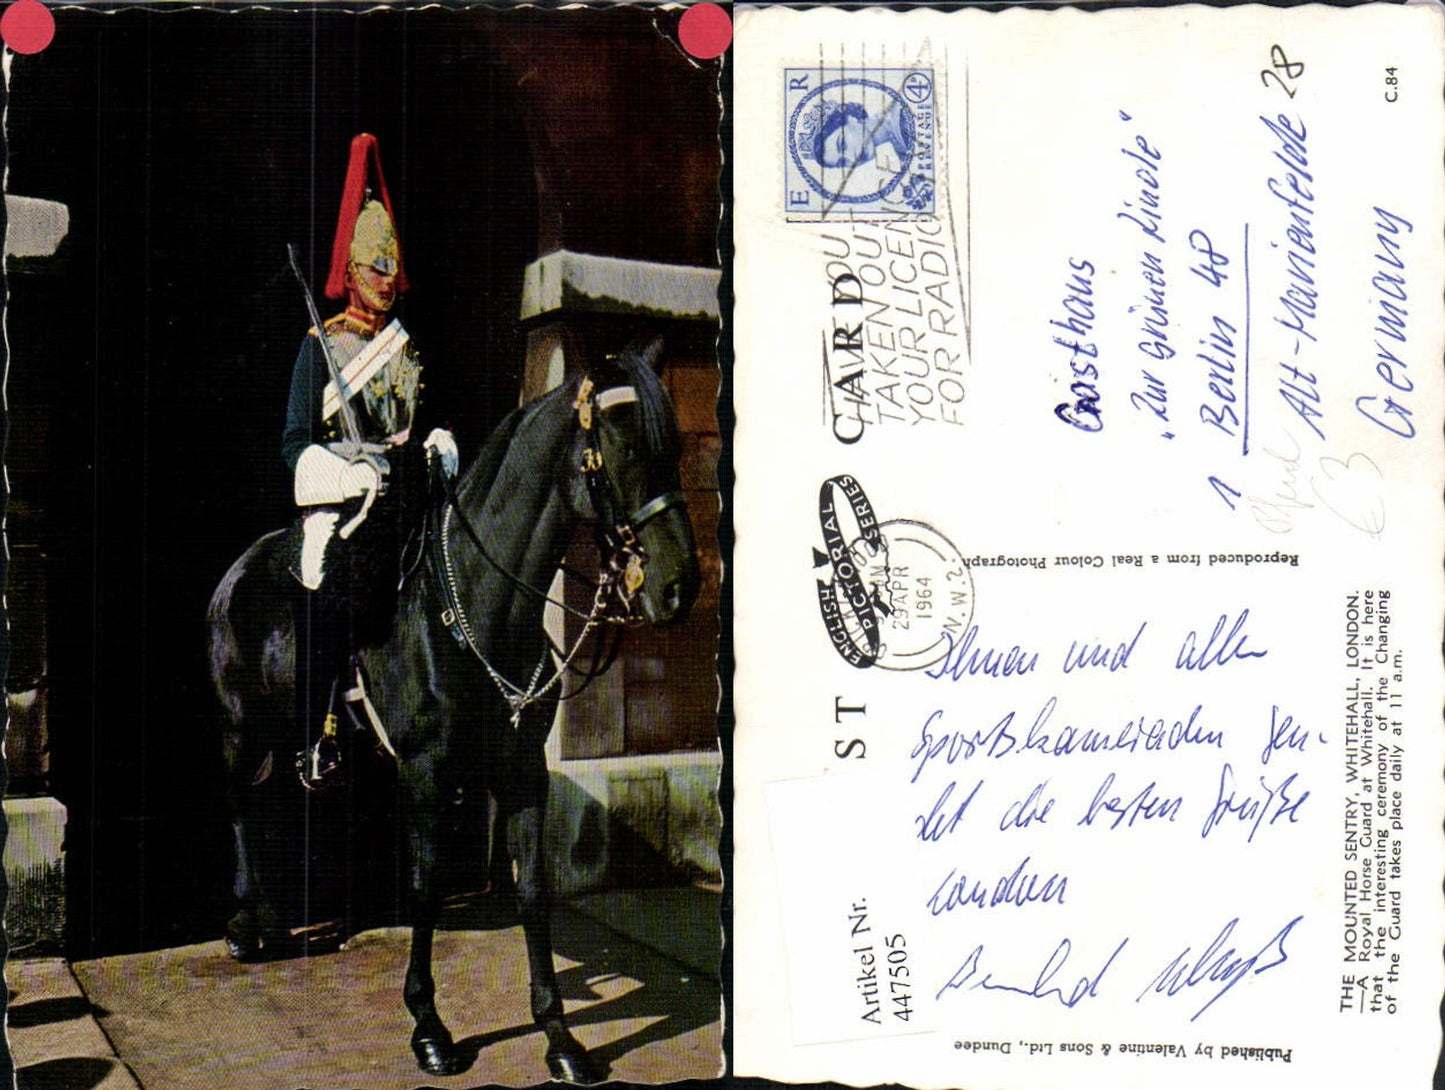 POST CARD
E R
4D
POSTAGE
REVENUE
HAVE YOU
TAKEN OUT
YOUR LICENCE
FOR RADIO
29 APR
1964
N.W.2.
ENGLISH
PICTORIAL
SERIES
Gasthaus
"Zur Grünen Linde"
1 Berlin 48
Alt-Marienfelde 28
Germany
€3
C.84
Reproduced from a Real Colour Photograph
Ihnen und allen
Sportskameraden sen-
det die besten Grüße
London
Bernhard
THE MOUNTED SENTRY, WHITEHALL, LONDON.
—A Royal Horse Guard at Whitehall. It is here
that the interesting ceremony of the Changing
of the Guard takes place daily at 11 a.m.
Artikel Nr.
447505
Published by Valentine & Sons Ltd., Dundee